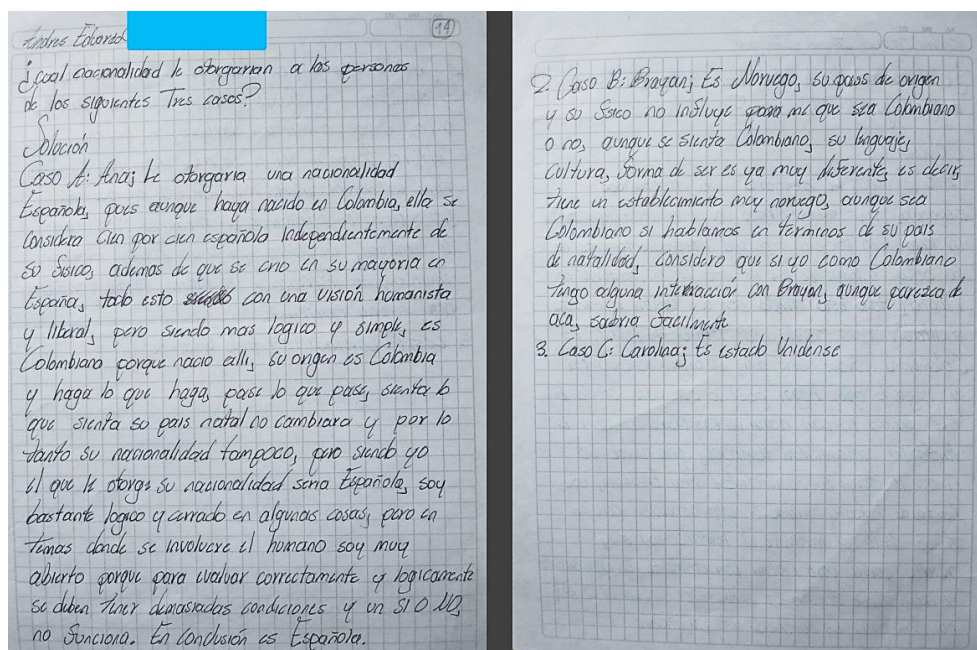 Andres Eduardo
14
¿cual nacionalidad le otorgarian a las personas
de los siguientes Tres casos?
Solución
Caso A: Ana; Le otorgaria una nacionalidad
Española, pues aunque haya nacido en Colombia, ella se
considera cien por cien española independientemente de
su fisico, ademas de que se crio en su mayoria en
España, todo esto con una visión humanista
y liberal, pero siendo mas logico y simple, es
Colombiana porque nacio alli, su origen es Colombia
y haga lo que haga, pase lo que pase, sienta lo
que sienta su pais natal no cambiara y por lo
tanto su nacionalidad tampoco, pero siendo yo
el que le otorga su nacionalidad seria Española, soy
bastante logico y cerrado en algunas cosas, pero en
temas donde se involucre el humano soy muy
abierto porque para evaluar correctamente y logicamente
se deben tener demasiadas condiciones y un SI O NO,
no funciona. En conclusión es Española.
2. Caso B: Brayan; Es Noruego, su pais de origen
y su fisico no influye para mi que sea Colombiano
o no, aunque se sienta Colombiano, su linguaje,
cultura, forma de ser es ya muy diferente, es decir,
tiene un establecimiento muy noruego, aunque sea
Colombiano si hablamos en términos de su pais
de natalidad, considero que si yo como Colombiano
tengo alguna interacción con Brayan, aunque parezca de
aca, sabria facilmente
3. Caso C: Carolina; Es estado Unidense